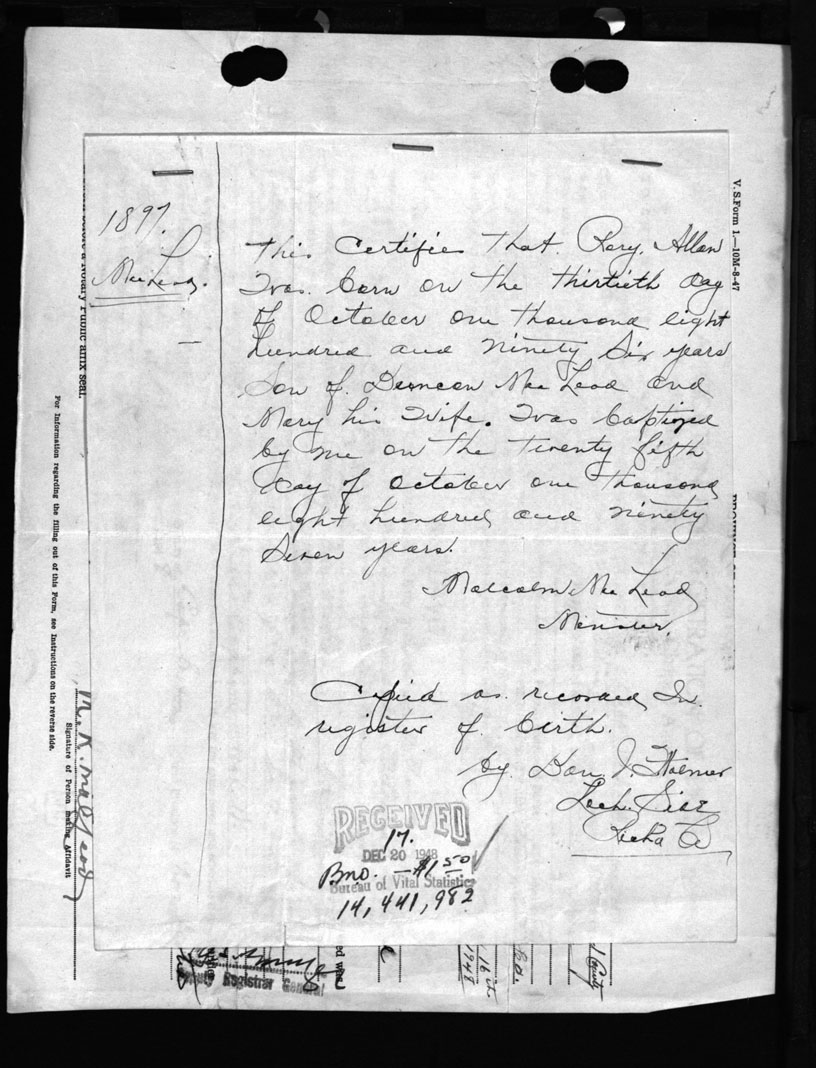 1897.
MacLeod.
This Certifies That. Rory. Allan
Was. born on the thirtieth day
of October one thousand eight
hundred and ninety Six years
Son of. Duncan MacLeod and
Mary his Wife. Was baptized
by me on the twenty fifth
day of October one thousand
eight hundred and ninety
Seven years.
Malcolm MacLeod
Minister.
Copied as. recorded In.
register of. birth.
by. Dan J.
Loch.
RECEIVED
17.
DEC 20 1948
Bno. - $1.50
Bureau of Vital Statistics
14,441,982
V. S. Form 1.—10M-8-47
Notary Public affix seal.
For Information regarding the filling out of this Form, see Instructions on the reverse side.
M. K. MacLeod
Signature of Person making Affidavit
Deputy Registrar General
ed was
16th
1948